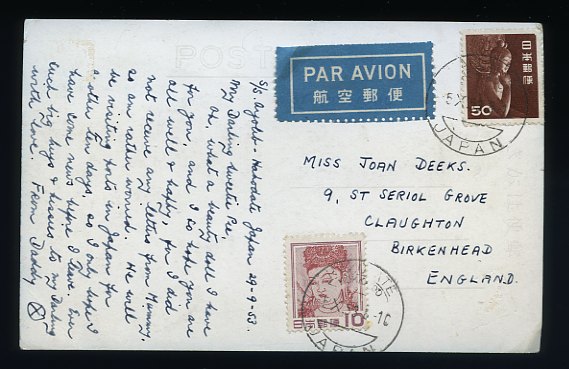 POST
S/S Ayoho - Hakodate Japan 29-9-53.
My Darling Sweetie Pie
Oh, what a beauty doll I have
for you, and I do hope you are
all well & happy for I did
not receive any letters from Mummy,
so am rather worried. We will
be visiting ports in Japan for
another few days, so I only hope I
have some news before I leave. Ever
such big hugs & kisses to my Darling
with love. From Daddy X
PAR AVION
航空郵便
日本郵便
50
JAPAN
MISS JOAN DEEKS.
9, ST SERIOL GROVE
CLAUGHTON
BIRKENHEAD
ENGLAND.
日本郵便 10
JAPAN